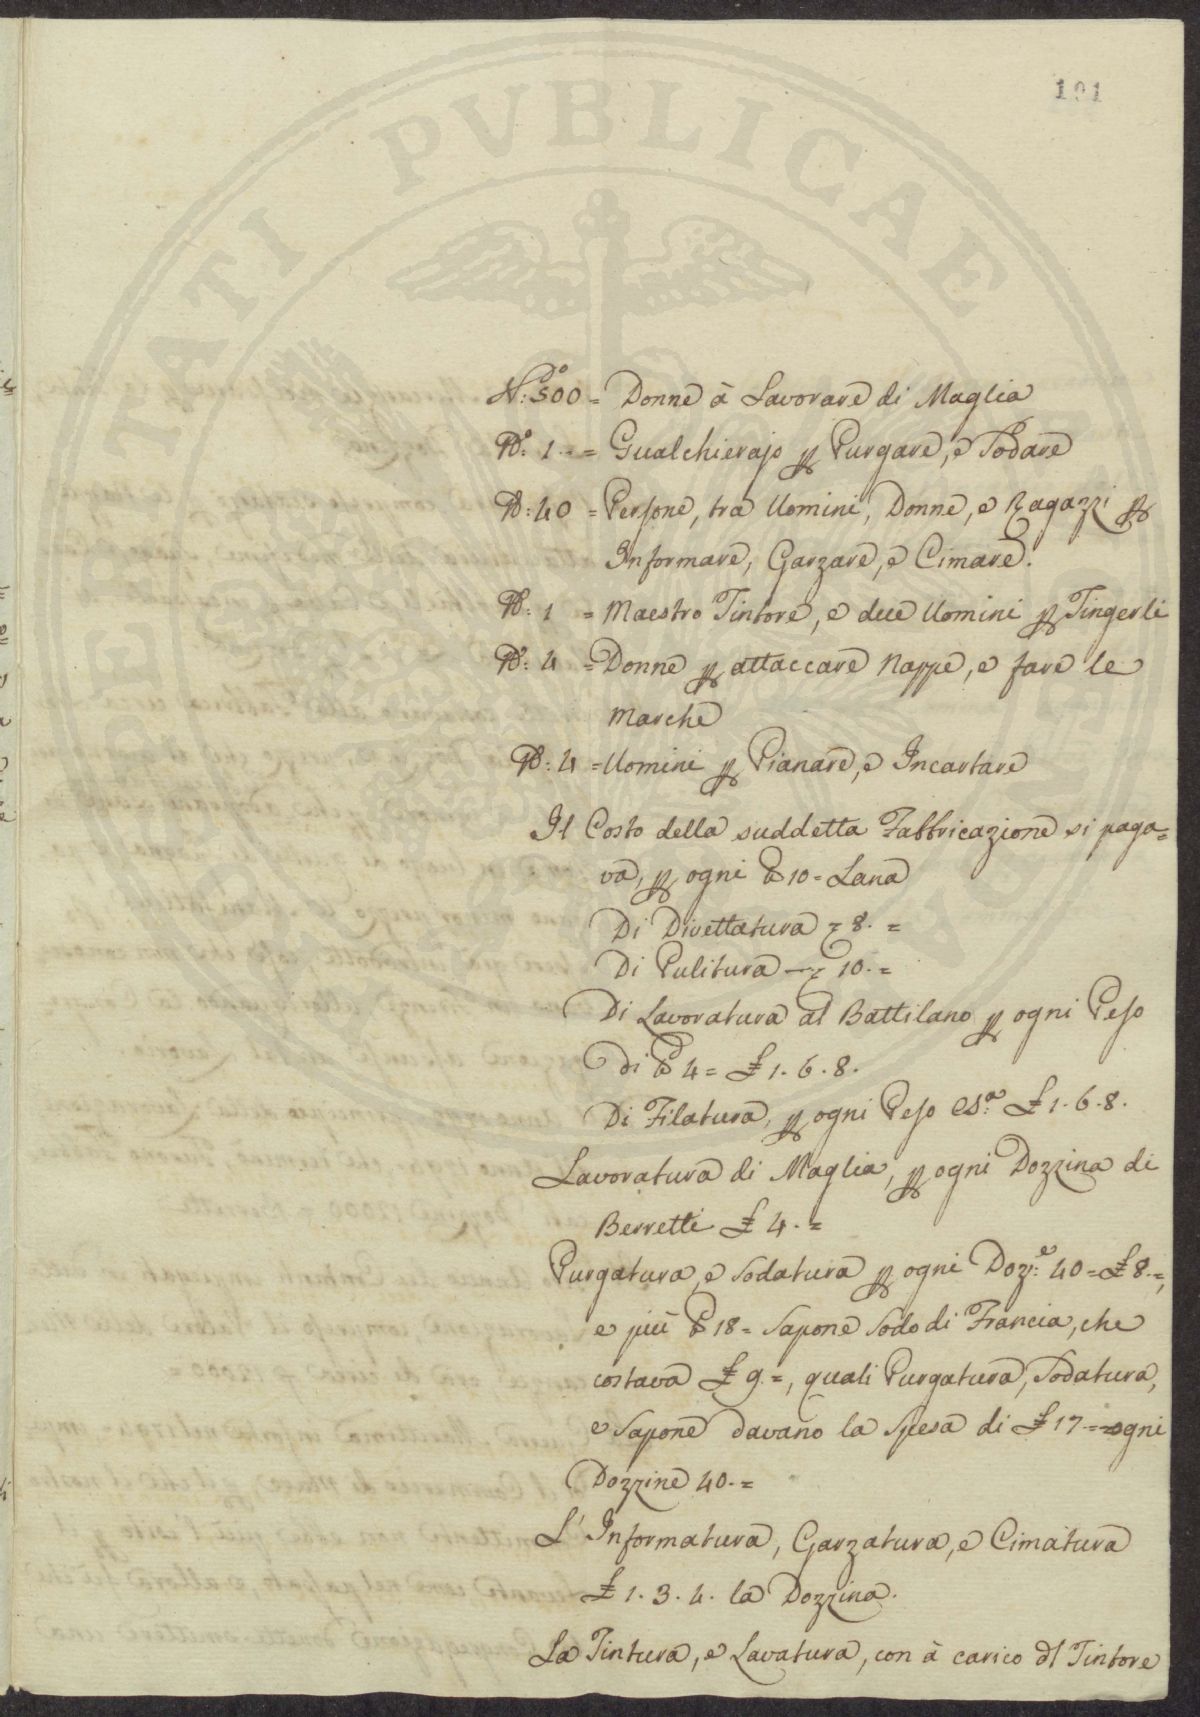 191
N:º 500 = Donne à Lavorare di Maglia
Nº: 1.- = Gualchierajo p Purgare, e Sodare
Nº: 40 = Persone, tra Uomini, Donne, e Ragazzi p
Informare, Garzare, e Cimare.
Nº: 1 = Maestro Tintore, e due Uomini p Tingerli
Nº: 4 = Donne p attaccare Nappe, e fare le
Marche
Nº: 4 = Uomini p Pianare, e Incartare
Il Costo della suddetta Fabbricazione si paga=
va, p ogni 10 = Lana
Di Divettatura 8. =
Di Pulitura — 10. =
Di Lavoratura al Battilano p ogni Peso
Di 4 = £ 1. 6. 8.
Di Filatura, p ogni Peso £ 1. 6. 8.
Lavoratura di Maglia, p ogni Dozzina di
Berretti £ 4. =
Purgatura, e Sodatura p ogni Doz:e 40 = £ 8. =,
e più 18 = Sapone Sodo di Francia, che
costava £ 9. =, quali Purgatura, Sodatura,
e Sapone davano la Spesa di £ 17. = ogni
Dozzine 40. =
L' Informatura, Garzatura, e Cimatura
£ 1. 3. 4. la Dozzina.
La Tintura, e Lavatura, con à carico dl Tintore
PUBLICAE